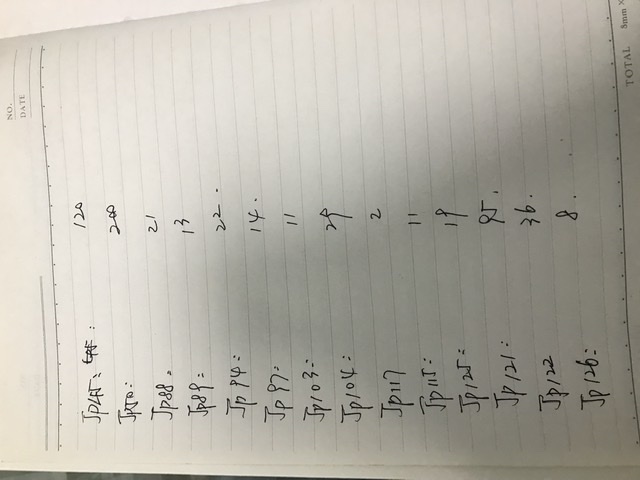 NO.
DATE
JP45: 120
JP50: 200
JP88: 21
JP89: 13
JP94: 22.
JP97: 14.
JP103: 11
JP104: 29
JP117 2
JP115: 11
JP125: 19
JP121: 95.
JP122 36.
JP126: 8.
TOTAL 8mm ×